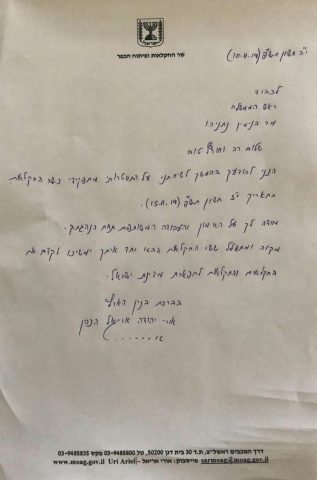 שר החקלאות ופיתוח הכפר
י"ב חשון תש"פ (10.11.19)
לכבוד
ראש הממשלה
מר בנימין נתניהו
שלום רב וחודש טוב
הנני להודיעך בהמשך לשיחתנו על התפטרותי מתפקידי כשר החקלאות
בתאריך י"ז חשון תש"פ (15.11.19).
מודה לך על האימון והעבודה המשותפת תחת הנהגתך.
מקוה ומתפלל ששר החקלאות הבא יחד איתך ימשיכו לקדם את
החקלאים והחקלאות לתפארת מדינת ישראל.
בברכת בנין הארץ
אורי יהודה אריאל הכהן
דרך המכבים ראשל"צ, ת.ד 30 בית דגן 50200, טל 03-9485800 פקס 03-9485835
www.moag.gov.il Uri Ariel – פייסבוק: אורי אריאל sarmoag@moag.gov.il